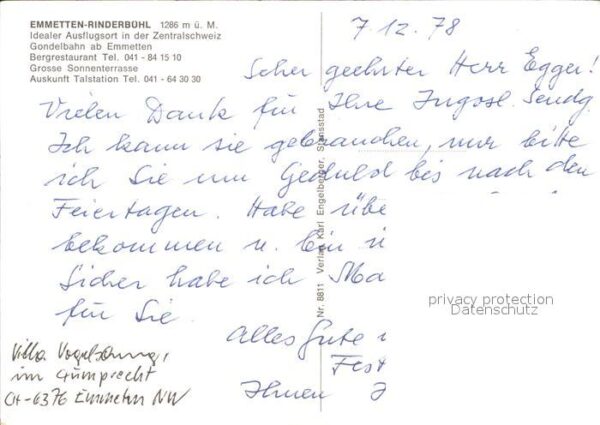 EMMETTEN-RINDERBÜHL 1286 m ü. M.
Idealer Ausflugsort in der Zentralschweiz
Gondelbahn ab Emmetten
Bergrestaurant Tel. 041 - 84 15 10
Grosse Sonnenterrasse
Auskunft Talstation Tel. 041 - 64 30 30
7.12.78
Sehr geehrter Herr Egger!
Vielen Dank für Ihre Jugosl. Sendg.
Ich kann sie gebrauchen, nur bitte
ich Sie um Geduld bis nach den
Feiertagen. Habe übe
bekommen u. bin
Sicher habe ich Ma
für Sie.
Alles Gute
Fest
Ihnen
Villa Vogelsang,
im Gumprecht
CH-6376 Emmetten NW
Nr. 8811 Verlag Karl Engelberger, Stansstad
privacy protection
Datenschutz